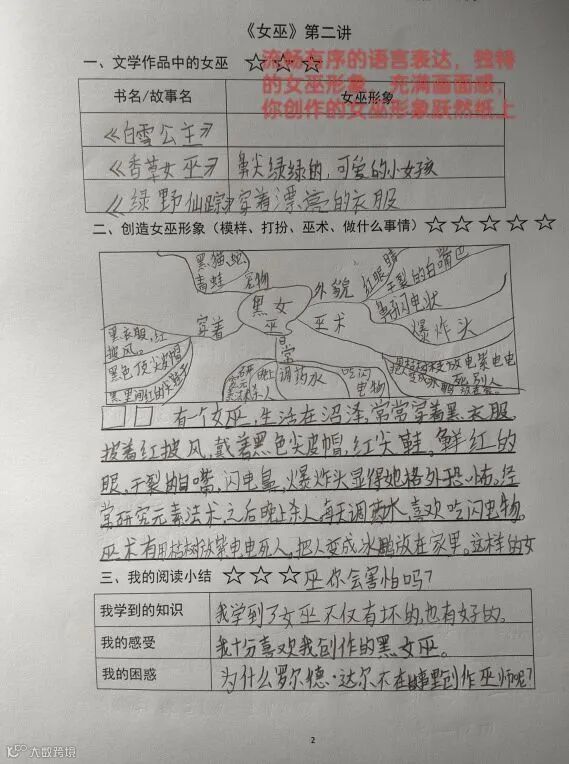 《女巫》第二讲
一、文学作品中的女巫 ☆☆☆
流畅有序的语言表达，独特
的女巫形象，充满画面感，
你创作的女巫形象跃然纸上
书名/故事名 女巫形象
《白雪公主》
《香草女巫》 鼻尖绿绿的,可爱的小女孩
《绿野仙踪》 穿着漂亮的衣服
二、创造女巫形象（模样、打扮、巫术、做什么事情）☆☆☆☆☆
黑猫,蛇
青蛙
宠物
黑女
巫
外貌
红眼睛
干裂的白嘴巴
鼻闪电状
爆炸头
穿着
黑衣服,红
披风。
黑色顶尖皮帽
巫术
日常
调药水
吃闪
电物
有一个女巫,生活在沼泽,常常穿着黑衣服,
披着红披风,戴着黑色尖皮帽,红尖鞋。鲜红的
眼,干裂的白嘴,闪电鼻,爆炸头显得她格外恐怖。经
常研究元素法术,之后晚上杀人,每天调药水,喜欢吃闪电物。
巫术有用枯树放紫电电死人,把人变成冰雕放在家里。这样的女
巫你会害怕吗?
三、我的阅读小结 ☆☆☆
我学到的知识 我学到了女巫不仅有坏的,也有好的。
我的感受 我十分喜欢我创作的黑女巫。
我的困惑 为什么罗尔德·达尔不在故事里创作巫师呢?
2
大数跨境